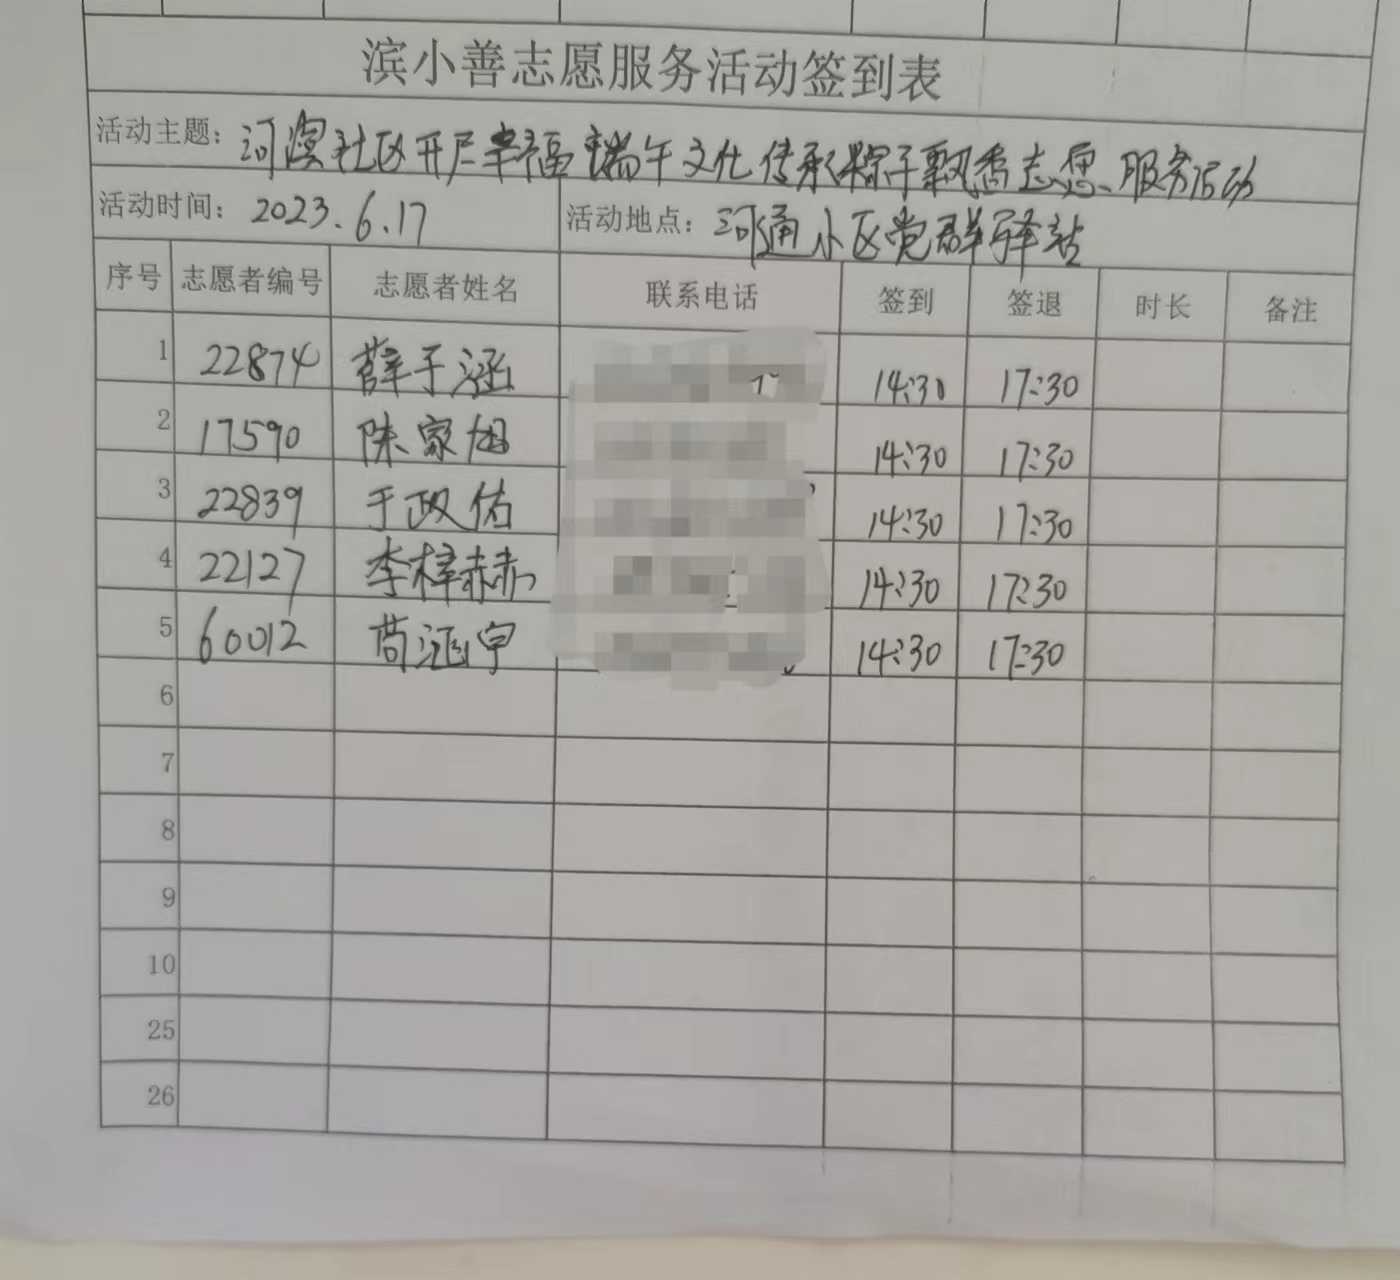 滨小善志愿服务活动签到表
活动主题：河滨社区开展幸福端午文化传承粽子飘香志愿服务活动
活动时间：2023.6.17 活动地点：河通小区党群驿站
序号 志愿者编号 志愿者姓名 联系电话 签到 签退 时长 备注
1 22874 薛于涵 14:30 17:30
2 17590 陈家旭 14:30 17:30
3 22839 于政佑 14:30 17:30
4 22127 李梓赫 14:30 17:30
5 60012 14:30 17:30
6
7
8
9
10
25
26